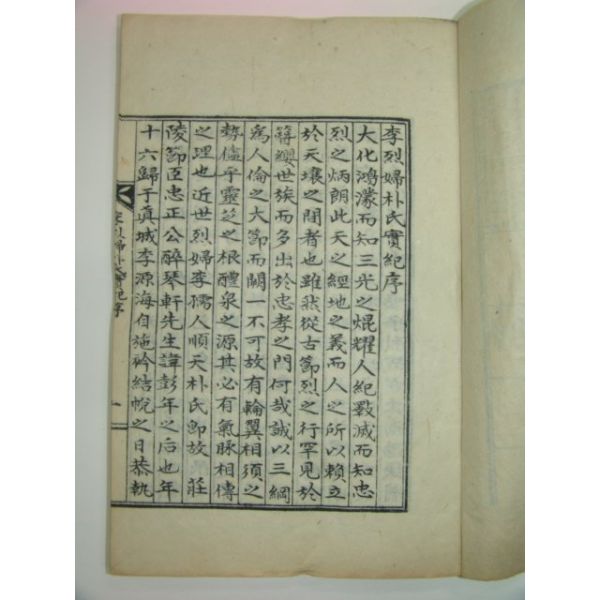 李烈婦朴氏實紀序
大化鴻濛而知三光之焜耀人紀斁滅而知忠
烈之炳朗此天之經地之義而人之所以賴立
於天壤之間者也雖然從古節烈之行罕見於
簪纓世族而多出於忠孝之門何哉誠以三綱
爲人倫之大節而闕一不可故有輪翼相須之
勢儘乎靈芝之根醴泉之源其必有氣脉相傳
之理也近世烈婦李孺人順天朴氏卽故 莊
陵節臣忠正公醉琴軒先生諱彭年之后也年
十六歸于眞城李源海自施衿結帨之日恭執
李烈婦朴氏實紀序
一